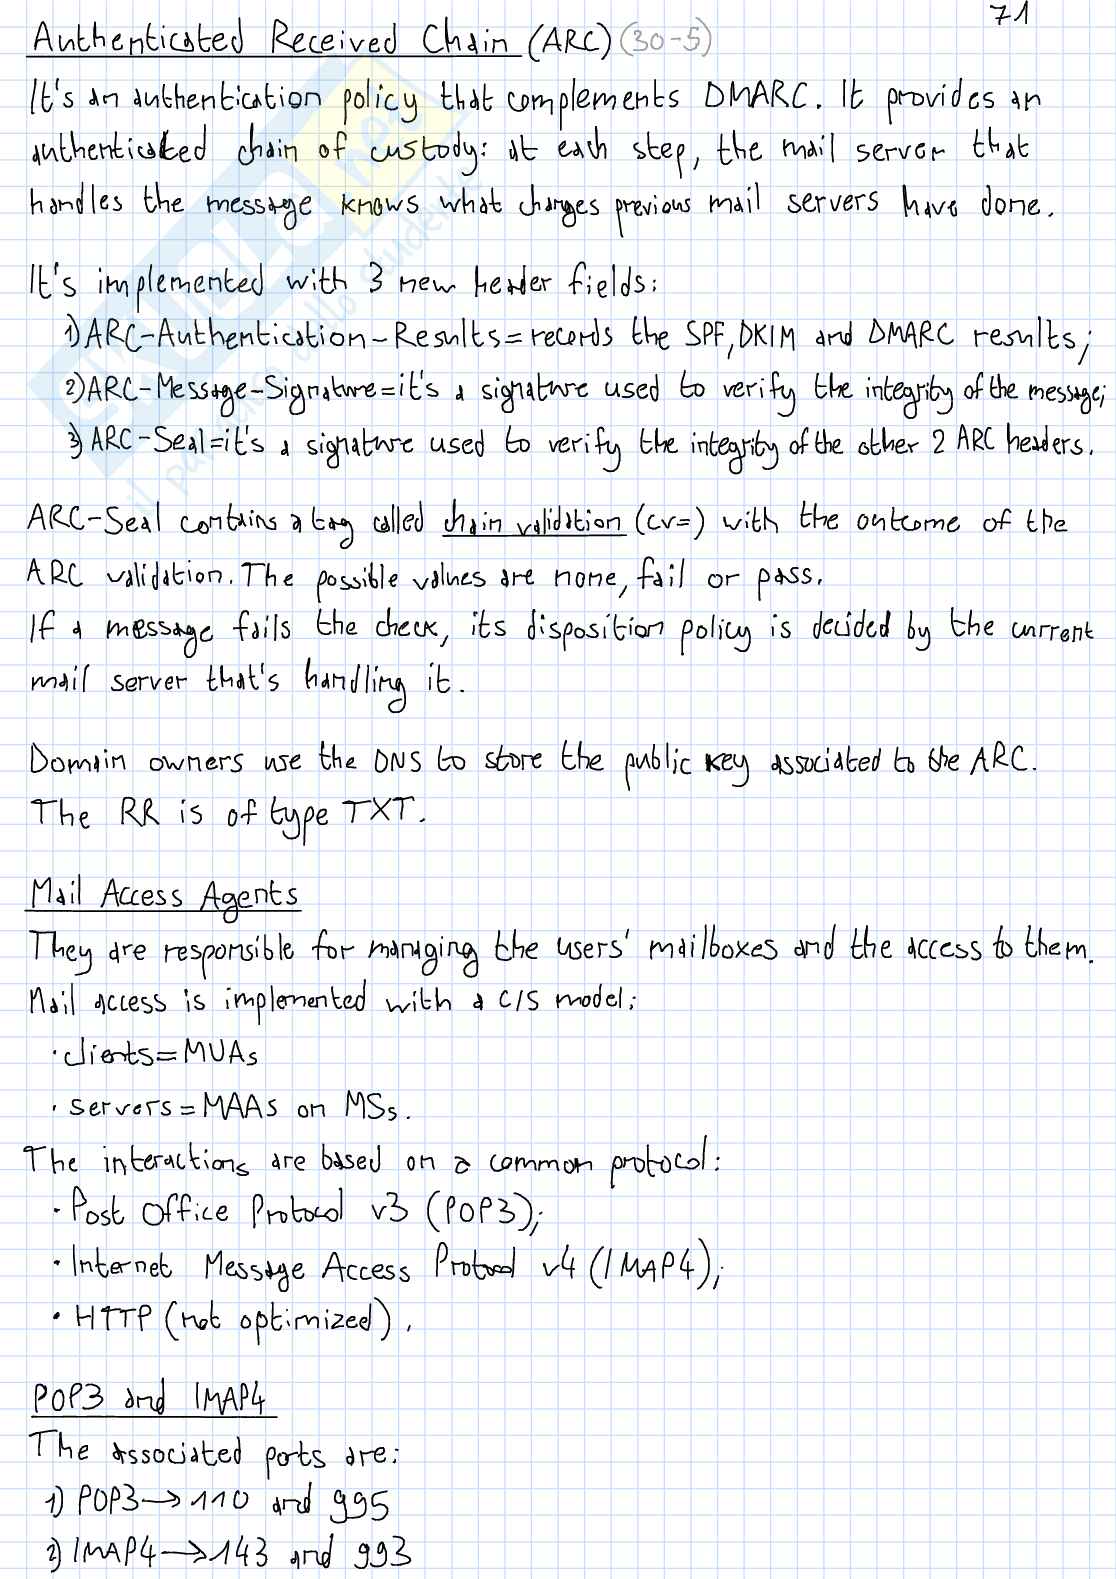 71
Authenticated Received Chain (ARC) (30-5)
It's an authentication policy that complements DMARC. It provides an
authenticated chain of custody: at each step, the mail server that
handles the message knows what changes previous mail servers have done.
It's implemented with 3 new header fields:
1) ARC-Authentication-Results = records the SPF, DKIM and DMARC results;
2) ARC-Message-Signature = it's a signature used to verify the integrity of the message;
3) ARC-Seal = it's a signature used to verify the integrity of the other 2 ARC headers.
ARC-Seal contains a tag called chain validation (cv=) with the outcome of the
ARC validation. The possible values are none, fail or pass.
If a message fails the check, its disposition policy is decided by the current
mail server that's handling it.
Domain owners use the DNS to store the public key associated to the ARC.
The RR is of type TXT.
Mail Access Agents
They are responsible for managing the users' mailboxes and the access to them.
Mail access is implemented with a C/S model:
· clients = MUAs
· servers = MAAs on MSs.
The interactions are based on a common protocol:
· Post Office Protocol v3 (POP3);
· Internet Message Access Protocol v4 (IMAP4);
· HTTP (not optimized).
POP3 and IMAP4
The associated ports are:
1) POP3 → 110 and 995
2) IMAP4 → 143 and 993